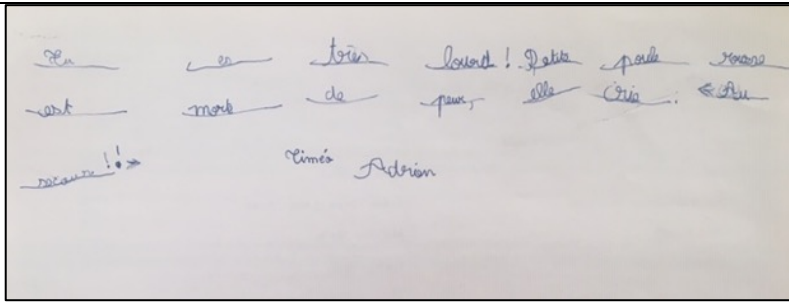 Tu es très lourd ! Petite poule rousse
est mort de peur, elle cris. « Au
secours !! »
Timéo Adrien